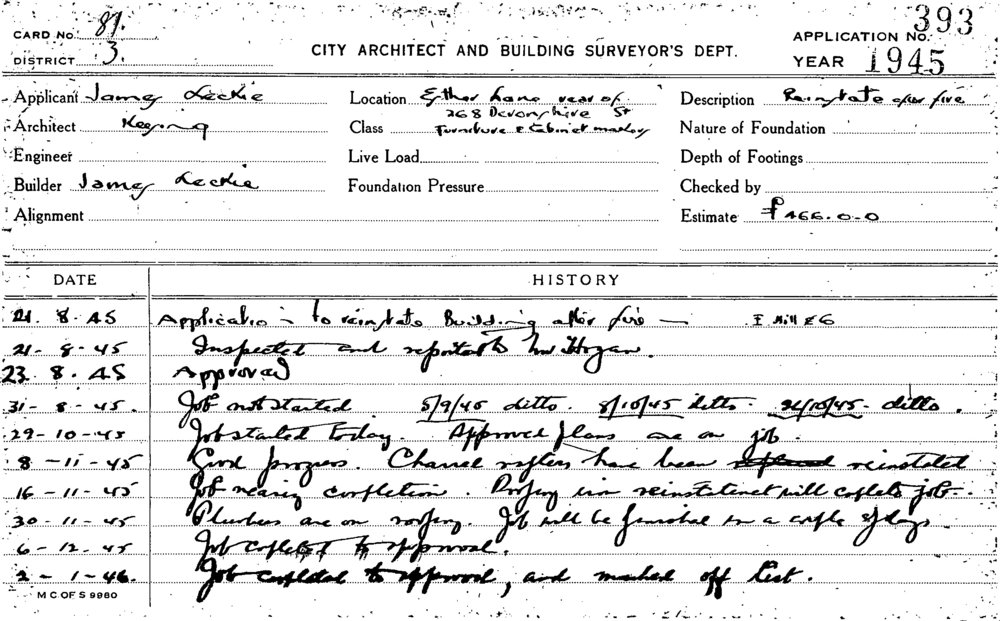 CARD No. 87.
DISTRICT 3.
CITY ARCHITECT AND BUILDING SURVEYOR'S DEPT.
APPLICATION No. 393
YEAR 1945
Applicant James Leckie
Location Esther Lane rear of
268 Devonshire St
Description Reinstate after fire
Architect
Class Furniture & Cabinet making
Nature of Foundation
Engineer
Live Load
Depth of Footings
Builder James Leckie
Foundation Pressure
Checked by
Alignment
Estimate £466.0.0
DATE HISTORY
21. 8. 45 Application - to reinstate Building after fire -
21- 8- 45 Inspected and reported to Mr Hogan.
23. 8. 45 Approved
31- 8- 45. Job not started 5/9/45 ditto. 8/10/45 ditto. 26/10/45 ditto.
29-10-45 Job started today. Approved plans are on job.
8-11-45 Good progress. Charred rafters have been replaced reinstated
16-11-45 Job nearing completion. Roofing iron reinstatement will complete job.
30-11-45 Plumbers are on roofing. Job will be finished in a couple of days.
6-12-45 Job completed to approval.
2-1-46. Job completed to approval, and marked off list.
M C OF S 9980